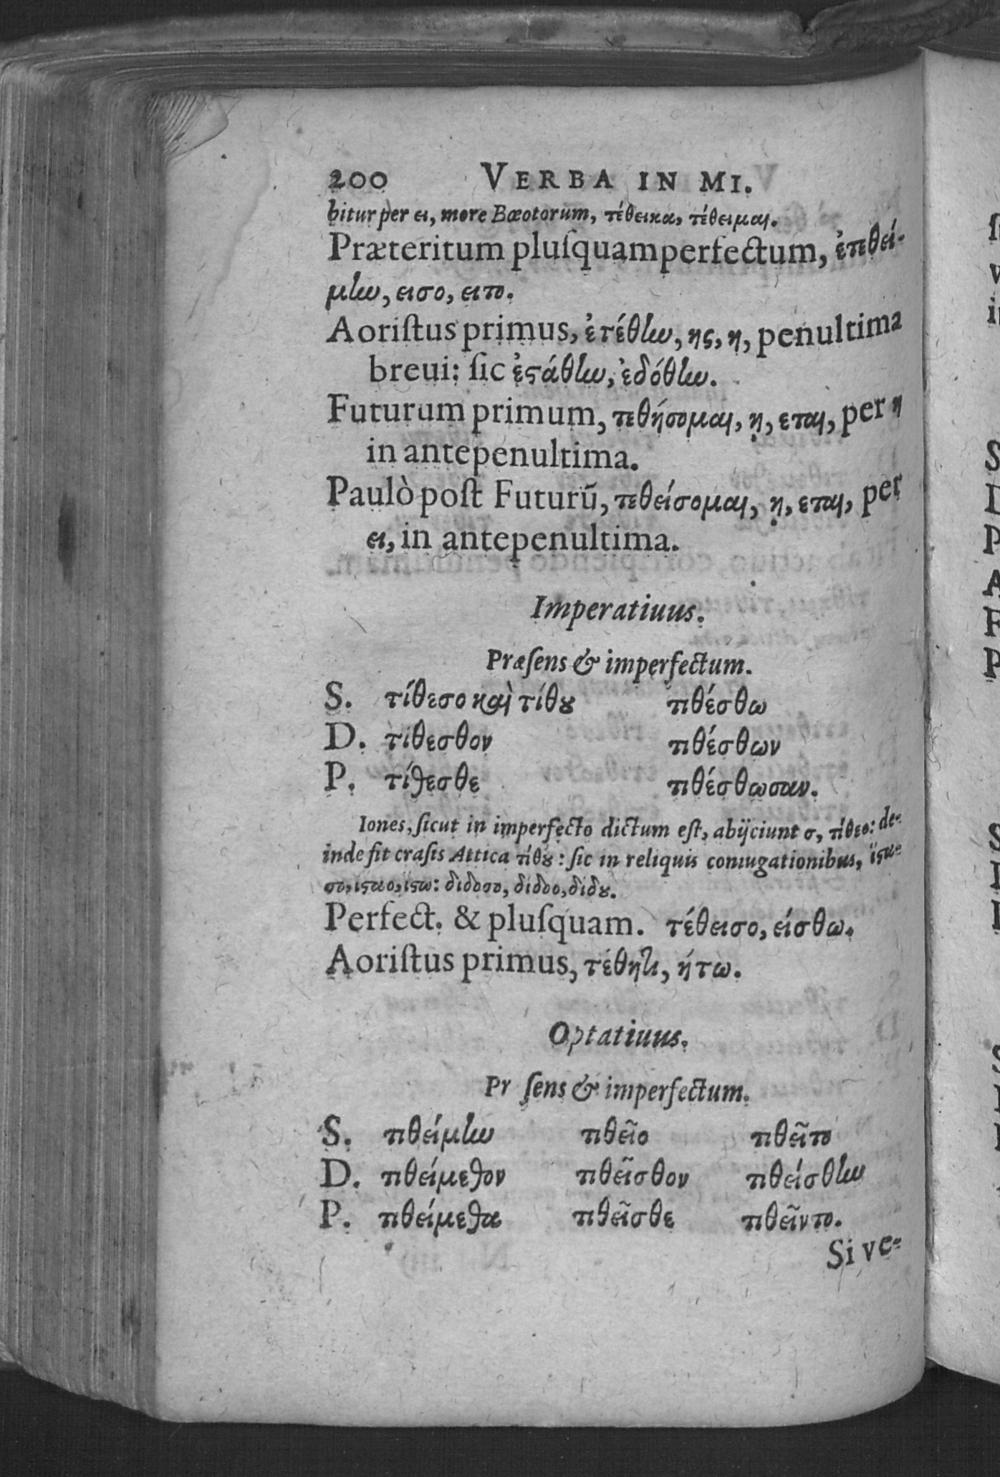 200 VERBA IN MI.
bitur per ει, more Bœotorum, τέθεικα, τέθειμαι.
Præteritum pluſquamperfectum, ἐτιθεί-
μην, εισο, ειτο.
Aoriſtus primus, ἐτέθην, ης, η, penultima
breui: ſic ἐστάθην, ἐδόθην.
Futurum primum, τιθήσομαι, ῃ, εται, per η
in antepenultima.
Paulò poſt Futurũ, τιθείσομαι, ῃ, εται, per
ει, in antepenultima.
Imperatiuus.
Præſens & imperfectum.
S. τίθεσο καὶ τίθου τιθέσθω
D. τίθεσθον τιθέσθων
P. τίθεσθε τιθέσθωσαν.
Iones, ſicut in imperfecto dictum eſt, abijciunt σ, τίθεο: de-
inde fit craſis Attica τίθου: ſic in reliquis coniugationibus, ἵστα-
σο, ἵσταο, ἵστω: δίδοσο, δίδοο, δίδου.
Perfect. & pluſquam. τέθεισο, είσθω.
Aoriſtus primus, τέθητι, ήτω.
Optatiuus.
Pr ſens & imperfectum.
S. τιθείμην τιθεῖο τιθεῖτο
D. τιθείμεθον τιθεῖσθον τιθείσθην
P. τιθείμεθα τιθεῖσθε τιθεῖντο.
Si ve-